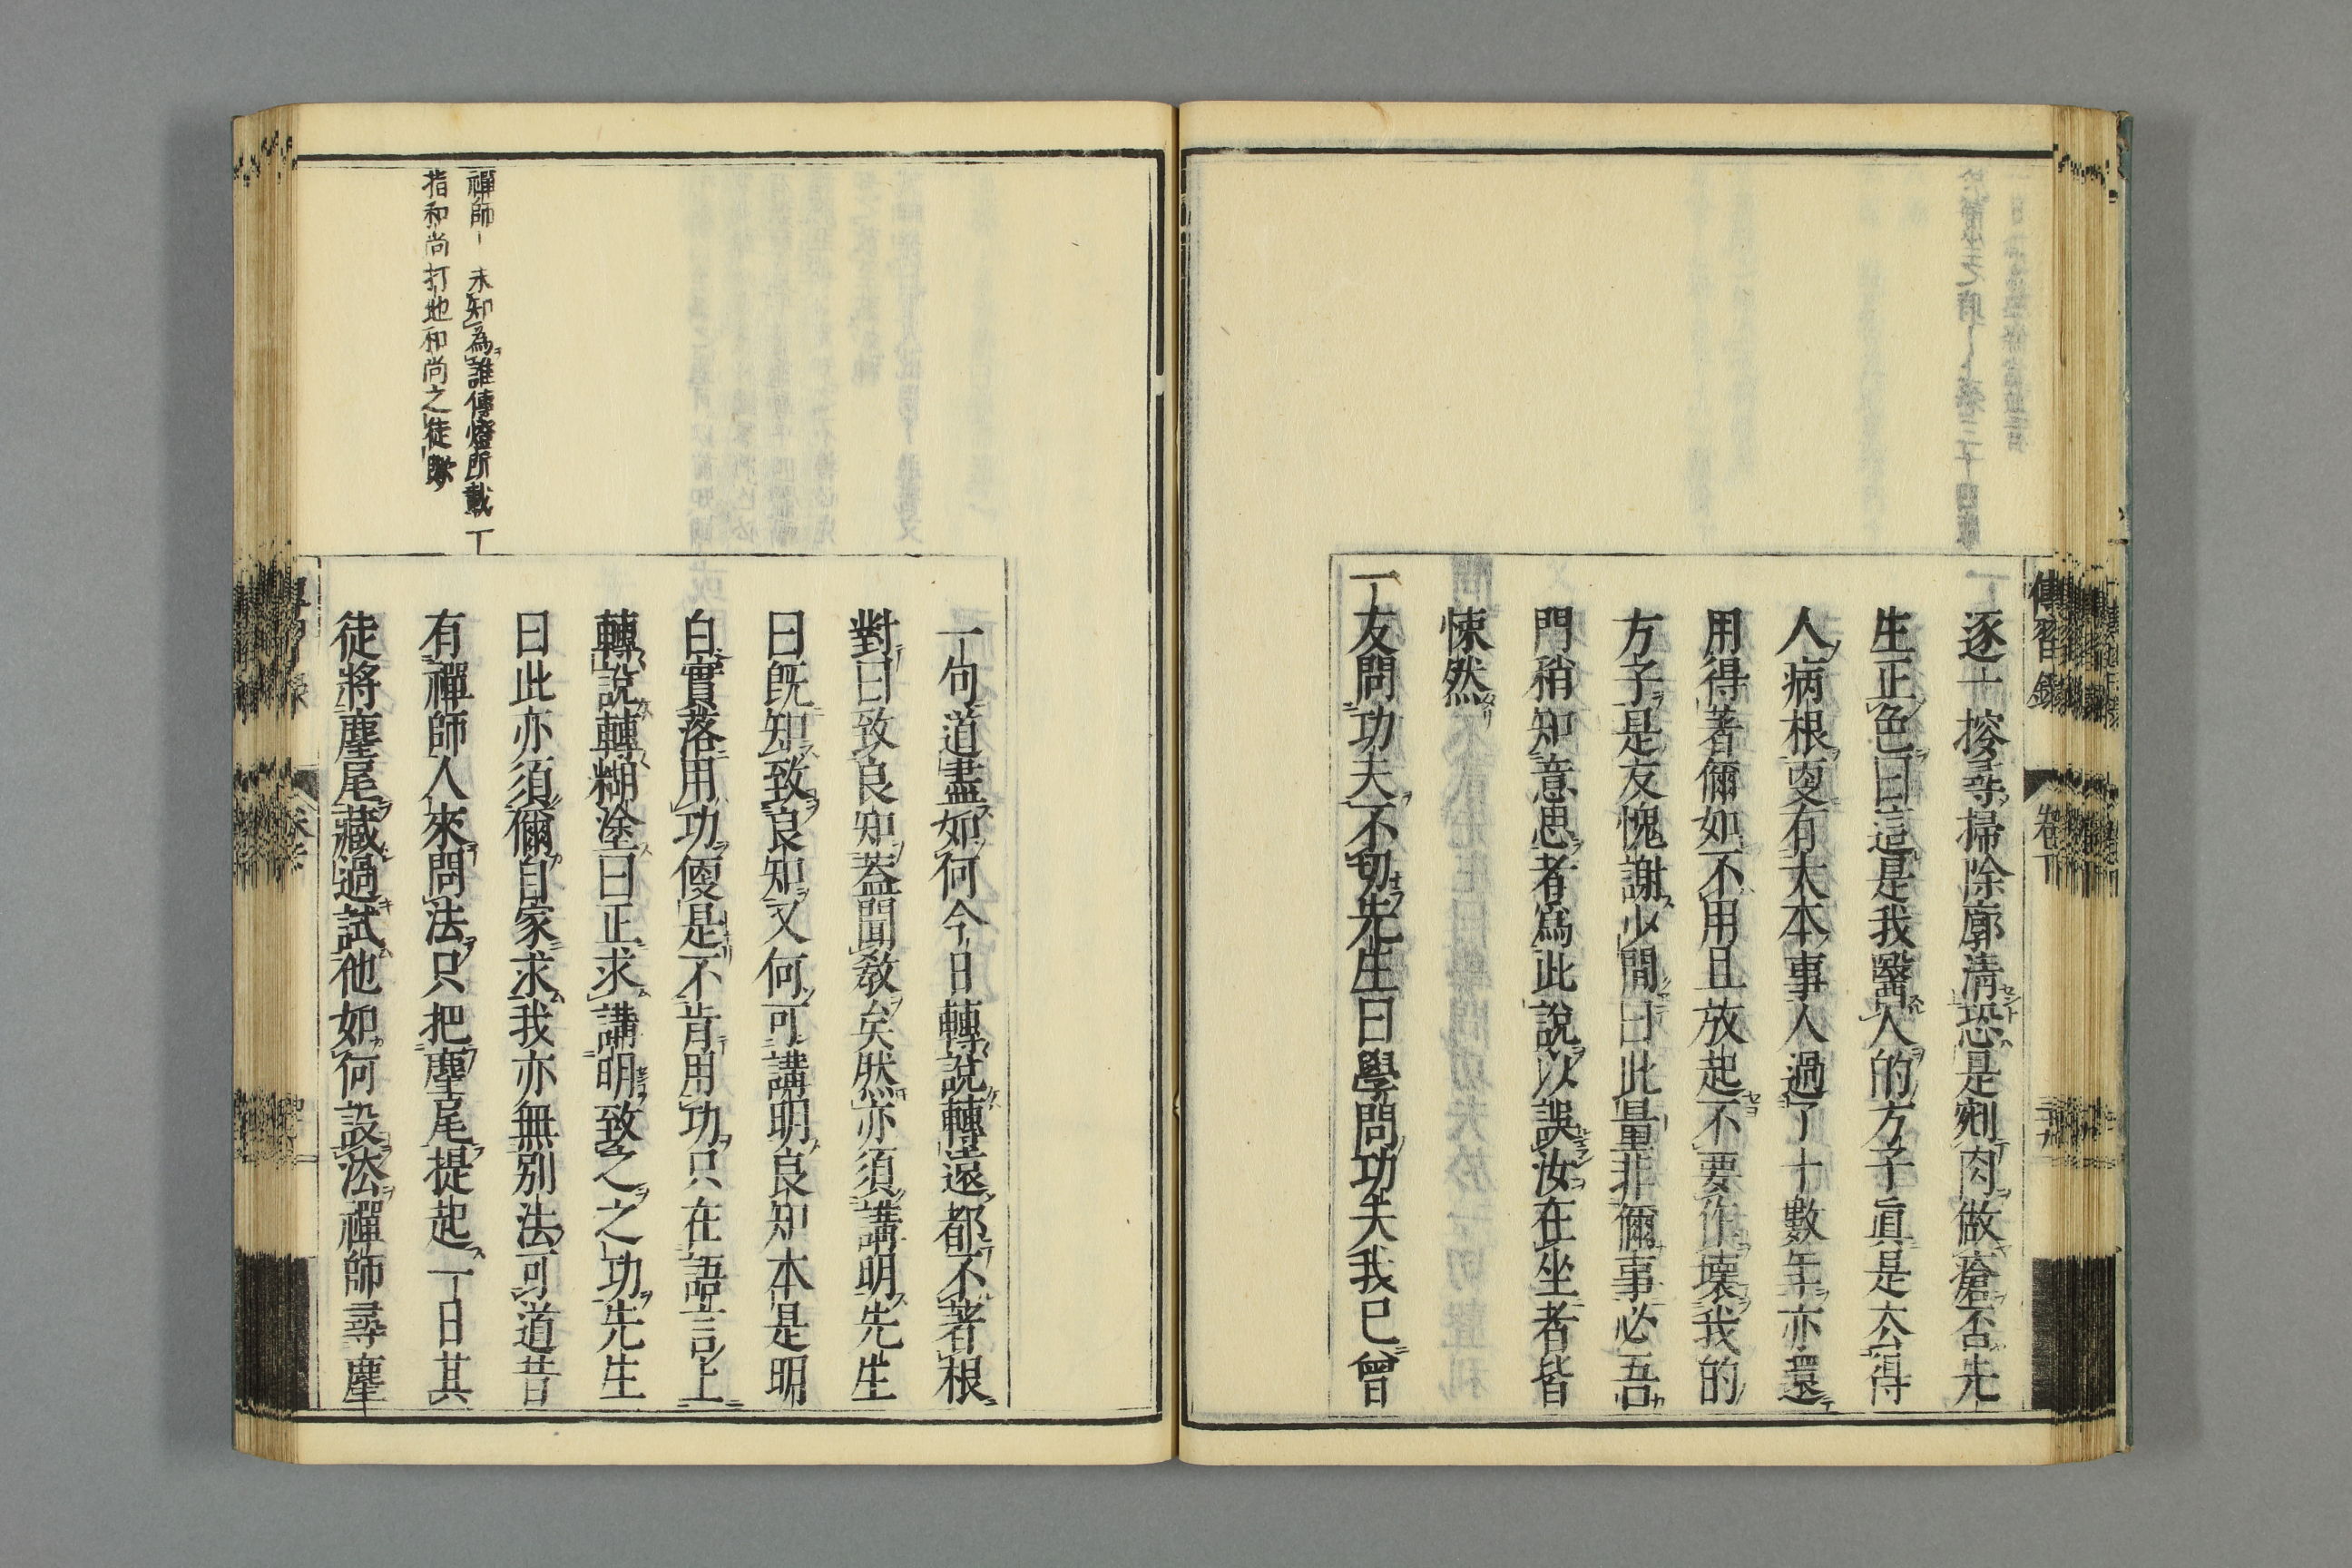 傳習録
卷下
逐一搜尋掃除廓清恐是剜肉做瘡否先
生正色曰這是我醫人的方子眞是去得
人病根更有大本事人過了十數年亦還
用得著儞如不用且放起不要作壞我的
方子是友愧謝少間曰此量非儞事必吾
門稍知意思者爲此説以誤汝在坐者皆
悚然
一友問功夫不切先生曰學問功夫我已曾
一句道盡如何今日轉説轉遠都不著根
對曰致良知蓋聞教矣然亦須講明先生
曰既知致良知又何可講明良知本是明
白實落用功便是不肯用功只在語言上
轉説轉糊塗曰正求講明致之之功先生
曰此亦須儞自家求我亦無別法可道昔
有禪師人來問法只把麈尾提起一日其
徒將麈尾藏過試他如何設法禪師尋麈
禪師｜未知爲誰傳燈所載丁
指和尚打地和尚之徒歟